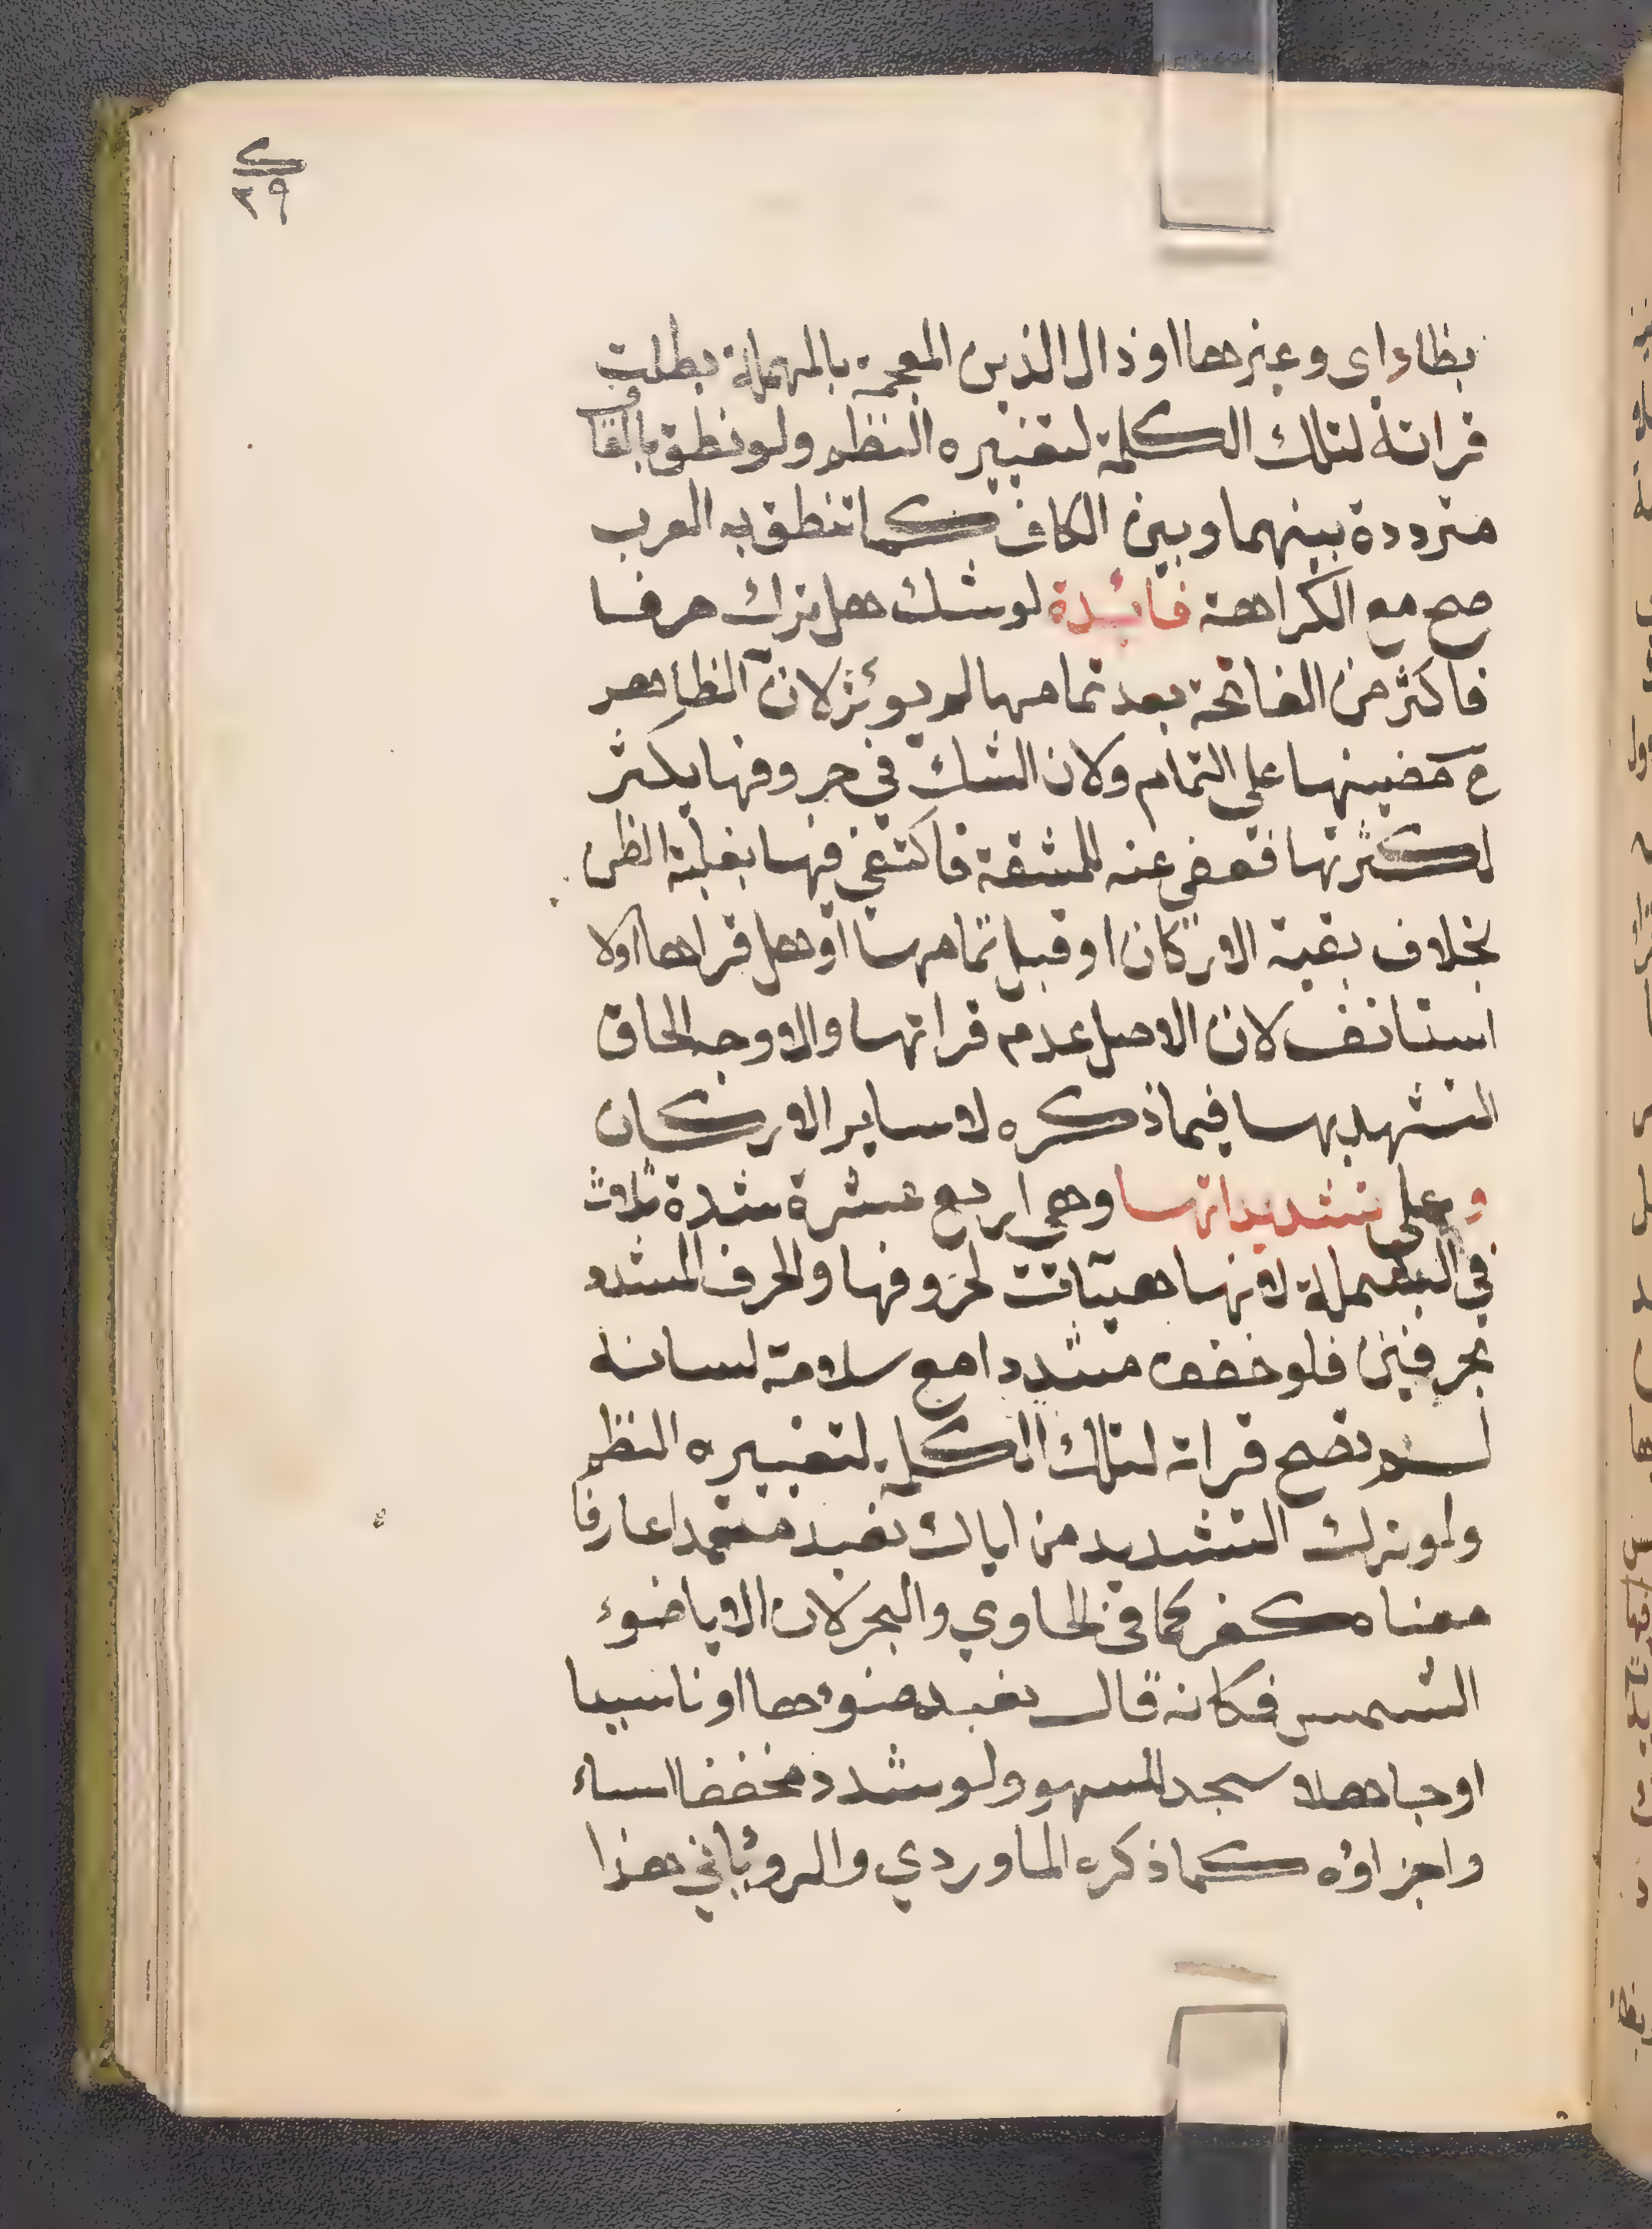 ك
٢٩
بظا داى وغيرها او ذال الذين المعجمة بالمهملة بطلت
قراته لتلك الكلمة لتغييره النظم ولو نطق بالقاف
مترددة بينها وبين الكاف كما تنطق به العرب
صح مع الكراهة فائدة لو شك هل ترك حرفا
فاكثر من الفاتحة بعد تمامها لم يوئثر لان الظاهر
مضيها على التمام ولان الشك في حروفها يكثر
لكثرتها فعفى عنه للمشقة فاكتفي فيها بغلبة الظن
بخلاف بقية الاركان او قبل تمامها او هل قراها اولا
استانف لان الاصل عدم قراتها والاوجه الحاق
التشهد بها فيما ذكره لا ساير الاركان
وعلى تشديداتها وهي اربع عشرة شدة ثلاث
في البسملة لانها هيئات لحروفها والحرف المشدد
بحرفين فلو خفف مشددا مع سلامة لسانه
لم تصح قراة لتلك الكلمة لتغييره النظم
ولو ترك التشديد من اياك نعبد متعمدا عارفا
معناه كفر كما في الحاوي والبحر لان الايا ضوء
الشمس فكانه قال نعبد ضوءها او ناسيا
او جاهلا سجد للسهو ولو شدد مخففا اساء
واجزاؤه كما ذكره الماوردي والروئاني هذا